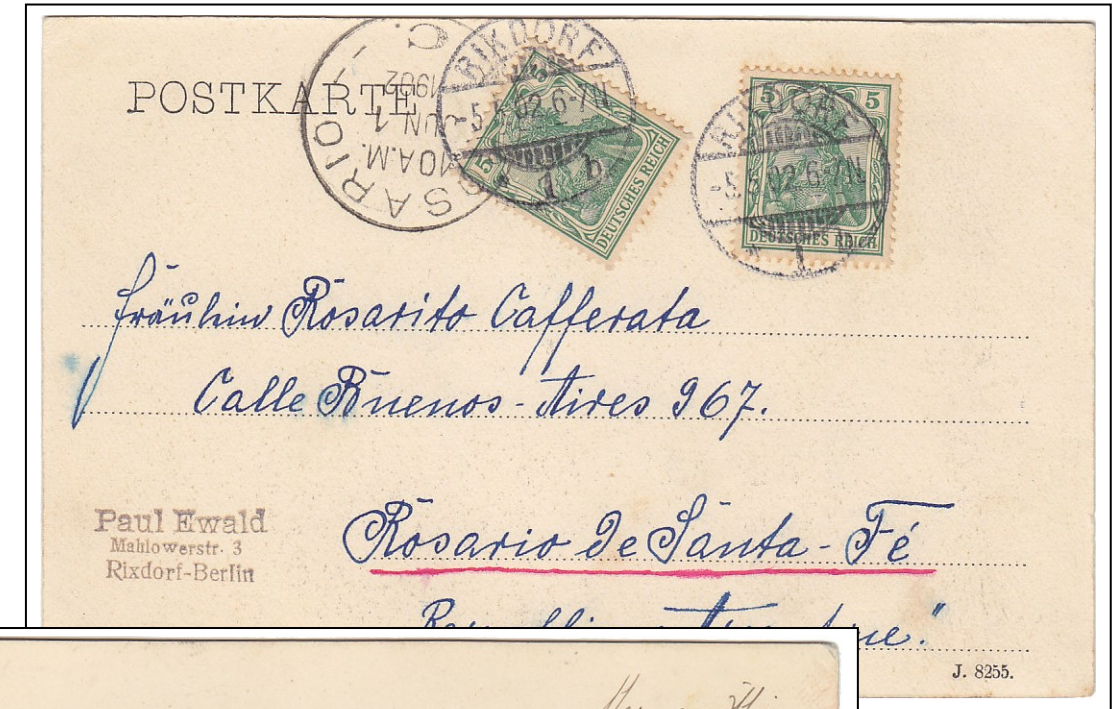 POSTKARTE
ROSARIO
10 A.M.
JUN 1
1902
C.
RIXDORF
-5.5.02.6-7N.
* 1 b.
5
DEUTSCHES REICH
RIXDORF
02.6-7N
1
5 5
DEUTSCHES REICH
Fräulein Rosarito Cafferata
Calle Buenos-Aires 967.
Rosario de Santa-Fé
Paul Ewald
Mahlowerstr. 3
Rixdorf-Berlin
J. 8255.